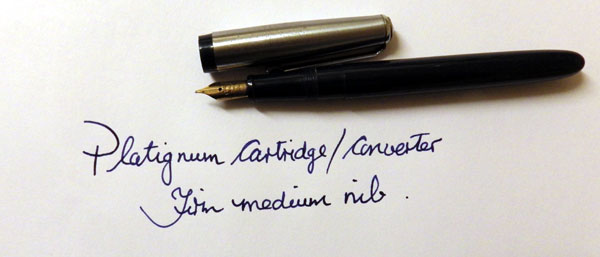 Platignum Cartridge/Converter
Firm medium nib.